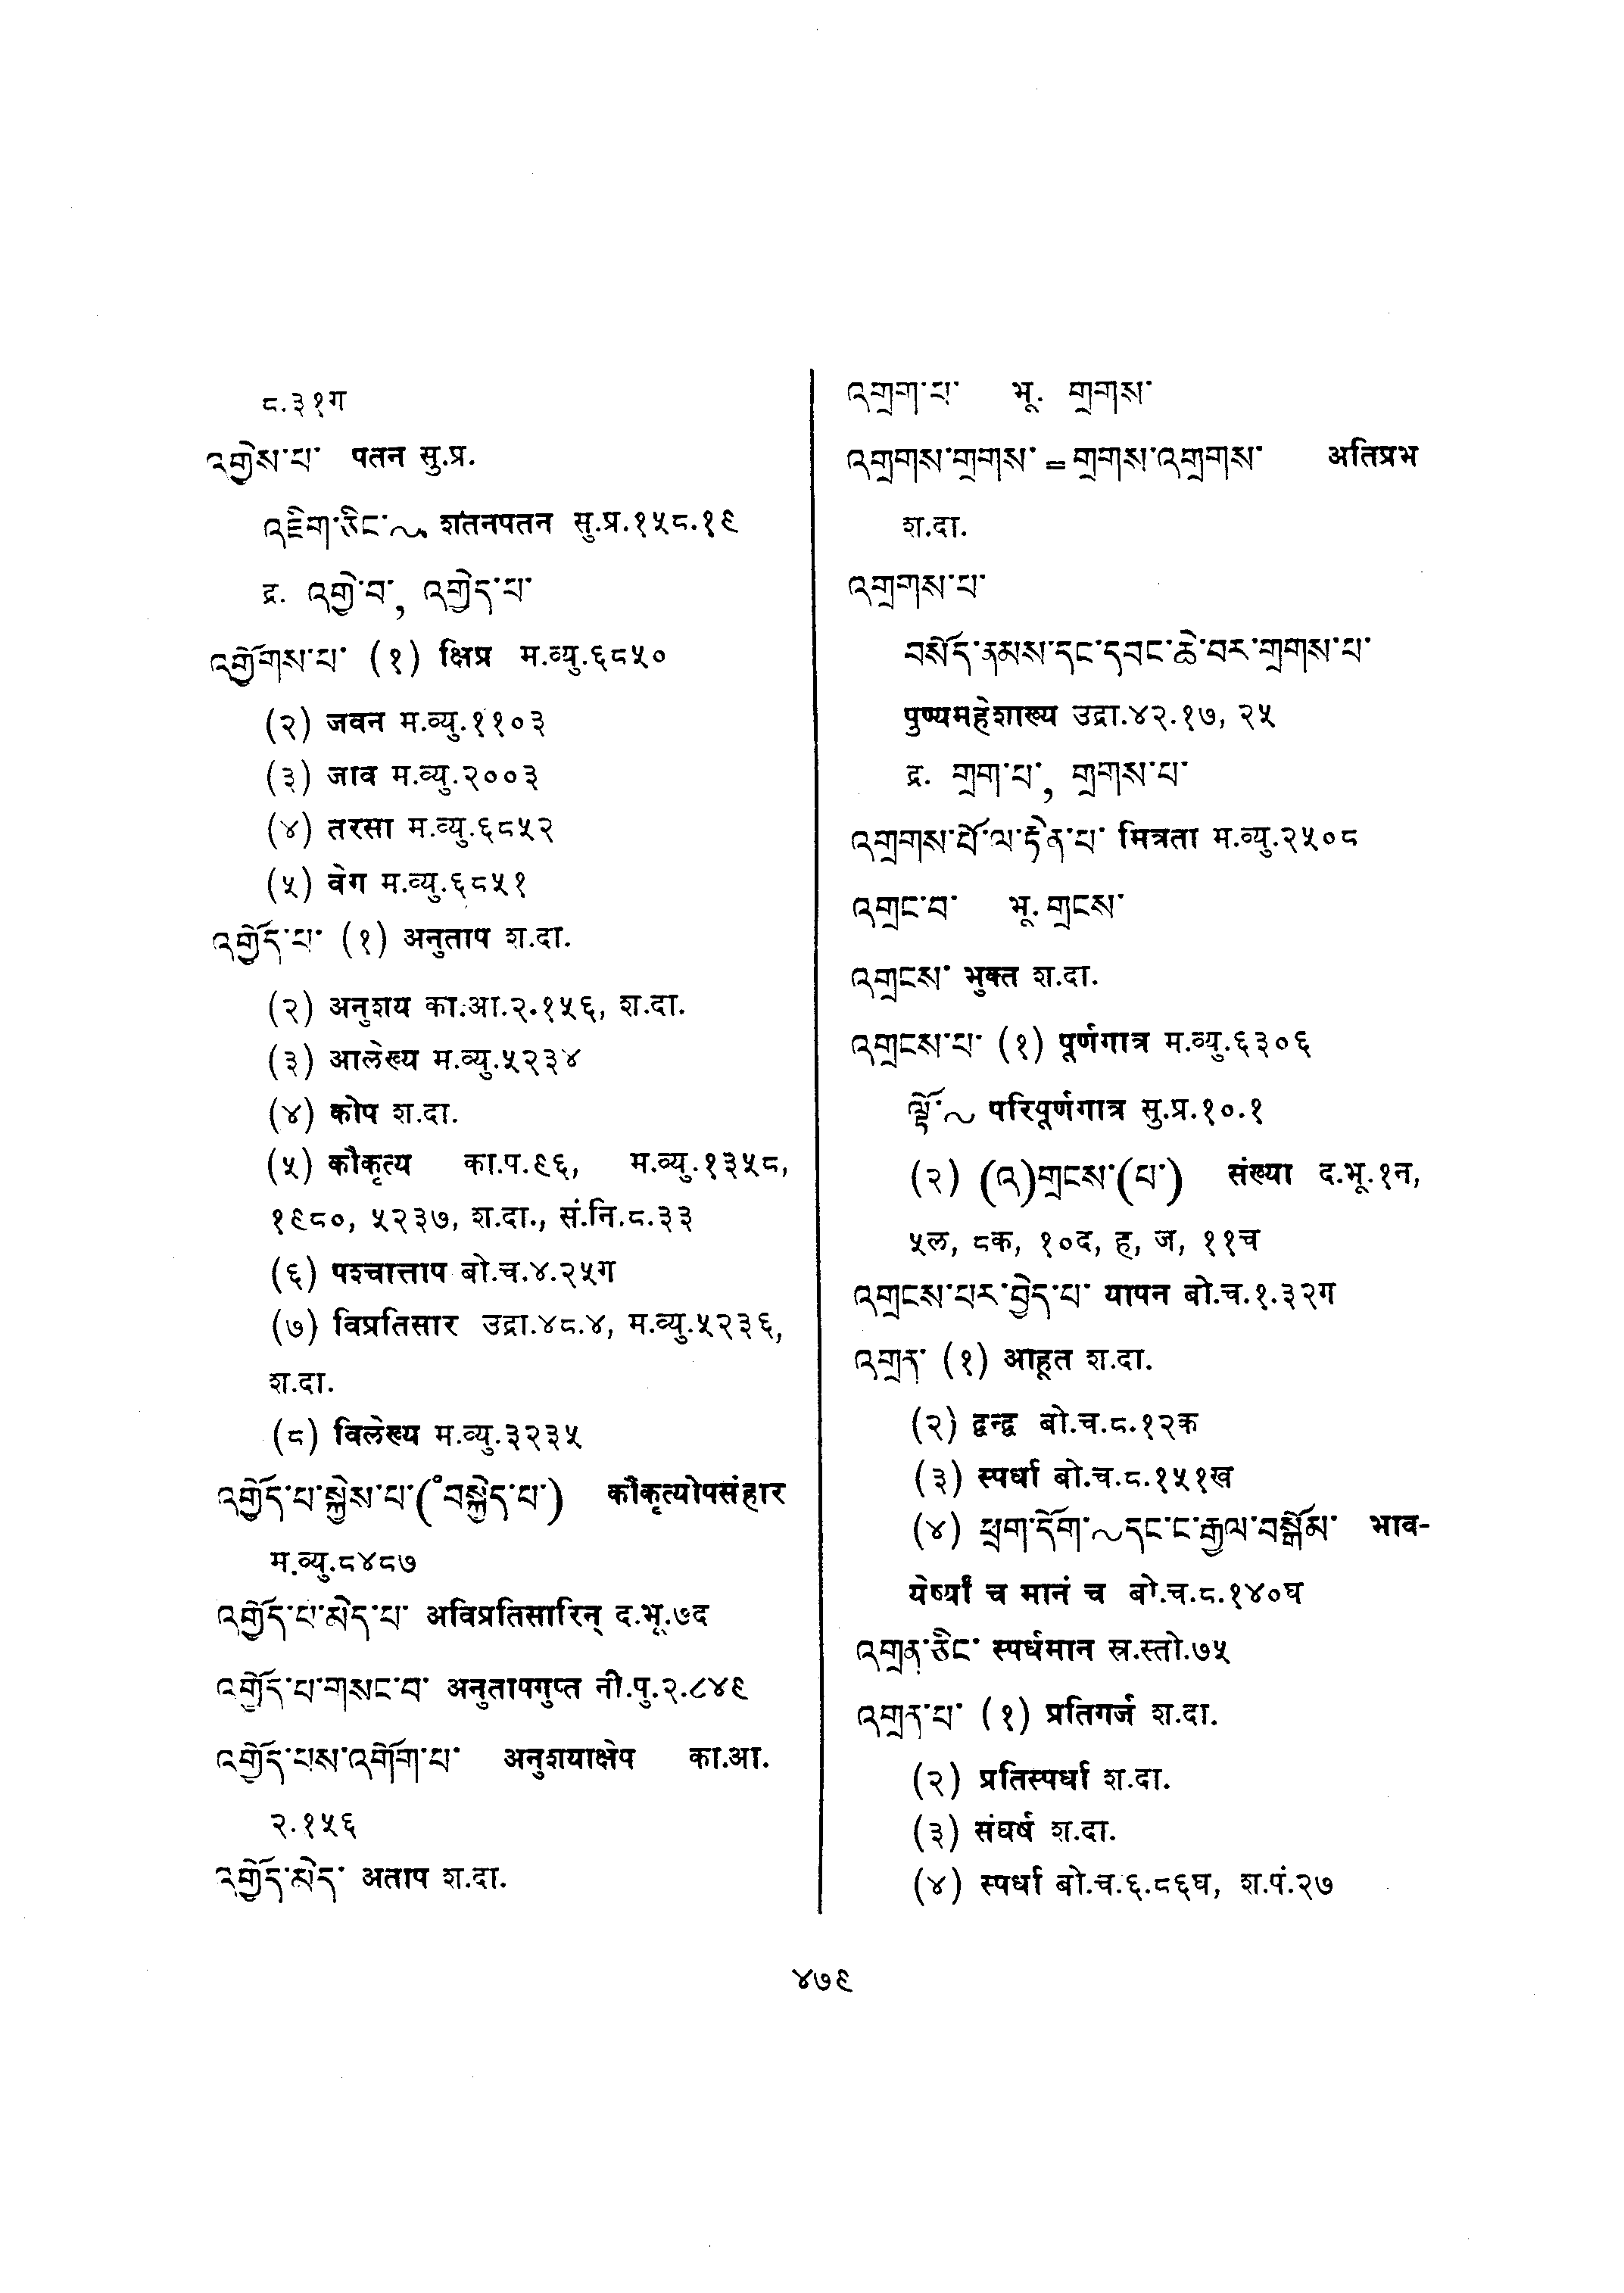 ८.३१ग
འགྱེས་པ་ पतन सु.प्र.
འཇིག་ཅིང་~ शतनपतन सु.प्र.१५८.१९
द्र. འགྱེ་བ་, འགྱེད་པ་
འགྱོགས་པ་ (१) क्षिप्र म.व्यु.६८५०
(२) जवन म.व्यु.११०३
(३) जाव म.व्यु.२००३
(४) तरसा म.व्यु.६८५२
(५) वेग म.व्यु.६८५१
འགྱོད་པ་ (१) अनुताप श.दा.
(२) अनुशय का.आ.२.१५६, श.दा.
(३) आलेख्य म.व्यु.५२३४
(४) कोप श.दा.
(५) कौकृत्य का.प.९६, म.व्यु.१३५८,
१९८०, ५२३७, श.दा., सं.नि.८.३३
(६) पश्चात्ताप बो.च.४.२५ग
(७) विप्रतिसार उद्रा.४८.४, म.व्यु.५२३६,
श.दा.
(८) विलेख्य म.व्यु.३२३५
འགྱོད་པ་སྐྱེས་པ་(ཾབསྐྱེད་པ་) कौकृत्योपसंहार
म.व्यु.८४८७
འགྱོད་པ་མེད་པ་ अविप्रतिसारिन् द.भू.७द
འགྱོད་པ་གསང་བ་ अनुतापगुप्त नी.पु.२.८४९
འགྱོད་པས་འགོག་པ་ अनुशयाक्षेप का.आ.
२.१५६
འགྱོད་མེད་ अताप श.दा.
འགྲག་པ་ भू. གྲགས་
འགྲགས་གྲགས་=གྲགས་འགྲགས་ अतिप्रभ
श.दा.
འགྲགས་པ་
བསོད་ནམས་དང་དབང་ཆེ་བར་གྲགས་པ་
पुण्यमहेशाख्य उद्रा.४२.१७, २५
द्र. གྲག་པ་, གྲགས་པ་
འགྲགས་པོ་ལ་རྟེན་པ་ मित्रता म.व्यु.२५०८
འགྲང་བ་ भू. གྲངས་
འགྲངས་ भुक्त श.दा.
འགྲངས་པ་ (१) पूर्णगात्र म.व्यु.६३०६
ལྟོ་~ परिपूर्णगात्र सु.प्र.१०.१
(२) (འ)གྲངས་(པ་) संख्या द.भू.१न,
५ल, ८क, १०द, ह, ज, ११च
འགྲངས་པར་བྱེད་པ་ यापन बो.च.१.३२ग
འགྲན་ (१) आहूत श.दा.
(२) द्वन्द्व बो.च.८.१२क
(३) स्पर्धा बो.च.८.१५१ख
(४) ཕྲག་དོག་~དང་ང་རྒྱལ་བསྒོམ་ भाव-
येर्ष्यां च मानं च बो.च.८.१४०घ
འགྲན་ཅིང་ स्पर्धमान स्र.स्तो.७५
འགྲན་པ་ (१) प्रतिगर्ज श.दा.
(२) प्रतिस्पर्धा श.दा.
(३) संघर्ष श.दा.
(४) स्पर्धा बो.च.६.८६घ, श.पं.२७
४७९